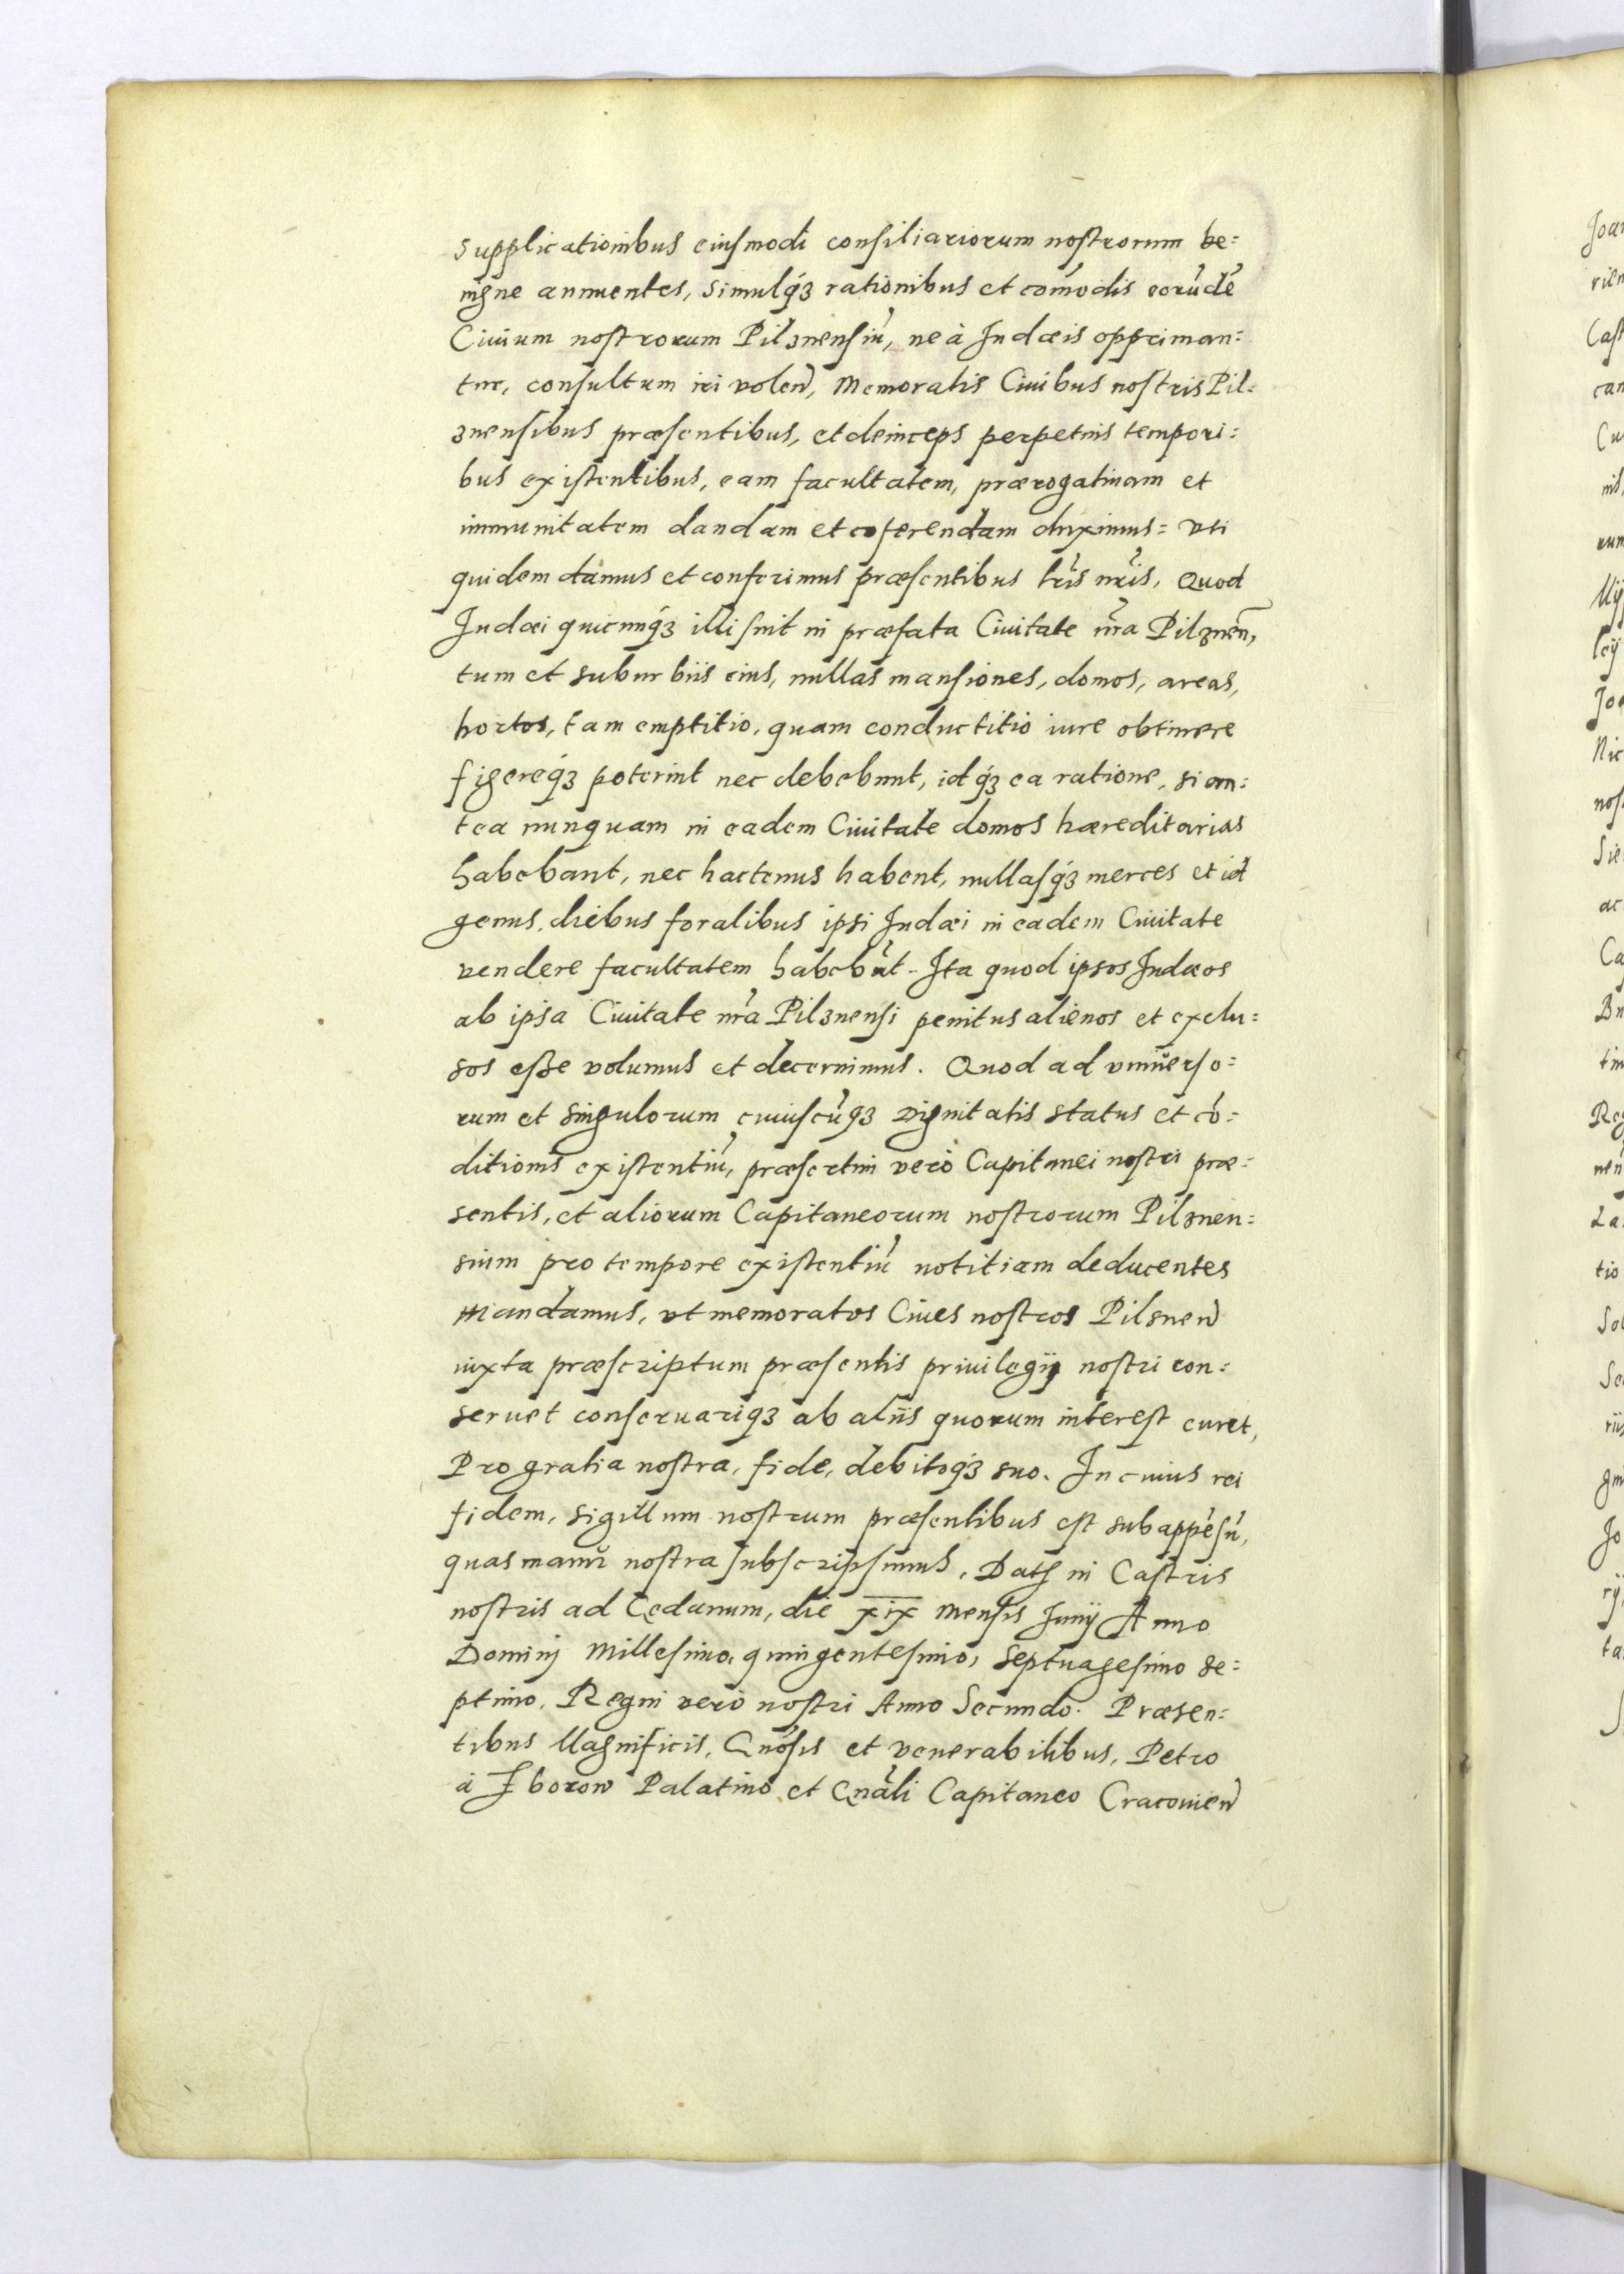 supplicationibus eiusmodi consiliariorum nostrorum be=
nigne annuentes, simulq́ꝫ rationibus et com̃odis eorũdẽ
Ciuium nostrorum Pilznensiũ, ne à Iudæis oppriman=
tur, consultum iri volen̄, Memoratis Ciuibus nostris Pil=
znensibus præsentibus, et deinceps perpetuis tempori=
bus existentibus, eam facultatem, prærogatiuam et
immunitatem dandam et coferendam duximus= vti
quidem damus et conferimus præsentibus lr̃is nr̃is, Quod
Iudæi quicunq́ꝫ illi sint in præfata Ciuitate nr̃a Pilznen̄,
tum et suburbiis eius, nullas mansiones, domos, areas,
hortos, tam emptitio, quam conductitio iure obtinere
figereq́ꝫ poterint nec debebunt, idq́ꝫ ea ratione, si an=
tea nunquam in eadem Ciuitate domos hæreditarias
habebant, nec hactenus habent, nullasq́ꝫ merces et id
genus, diebus foralibus ipsi Iudæi in eadem Ciuitate
vendere facultatem habebũt. Ita quod ipsos Iudæos
ab ipsa Ciuitate nr̃a Pilznensi penitus alienos et exclu=
sos esse volumus et decernimus. Quod ad vniuerso=
rum et singulorum cuiuscũqꝫ Dignitatis status et cõ=
ditionis existentiũ, præsertim verò Capitanei nostri præ=
sentis, et aliorum Capitaneorum nostrorum Pilznen=
sium pro tempore existentiũ notitiam deducentes
Mandamus, vt memoratos Ciues nostros Pilsnen̄
iuxta præscriptum præsentis priuilegij nostri con=
seruet conseruariqꝫ ab aliis quorum interest curet,
Pro gratia nostra, fide, debitoq́ꝫ suo. In cuius rei
fidem, sigillum nostrum præsentibus est subappẽsũ,
quas manu nostra subscripsimus. Datꝭ in Castris
nostris ad Gedanum, die xix Mensis Iunij Anno
Dominj Millesimo, quingentesimo, septuagesimo se=
ptimo, Regni verò nostri Anno Secundo. Præsen=
tibus Magnificis, Gñosis et venerabilibus, Petro
à Zborow Palatino et Gñali Capitaneo Cracouien̄